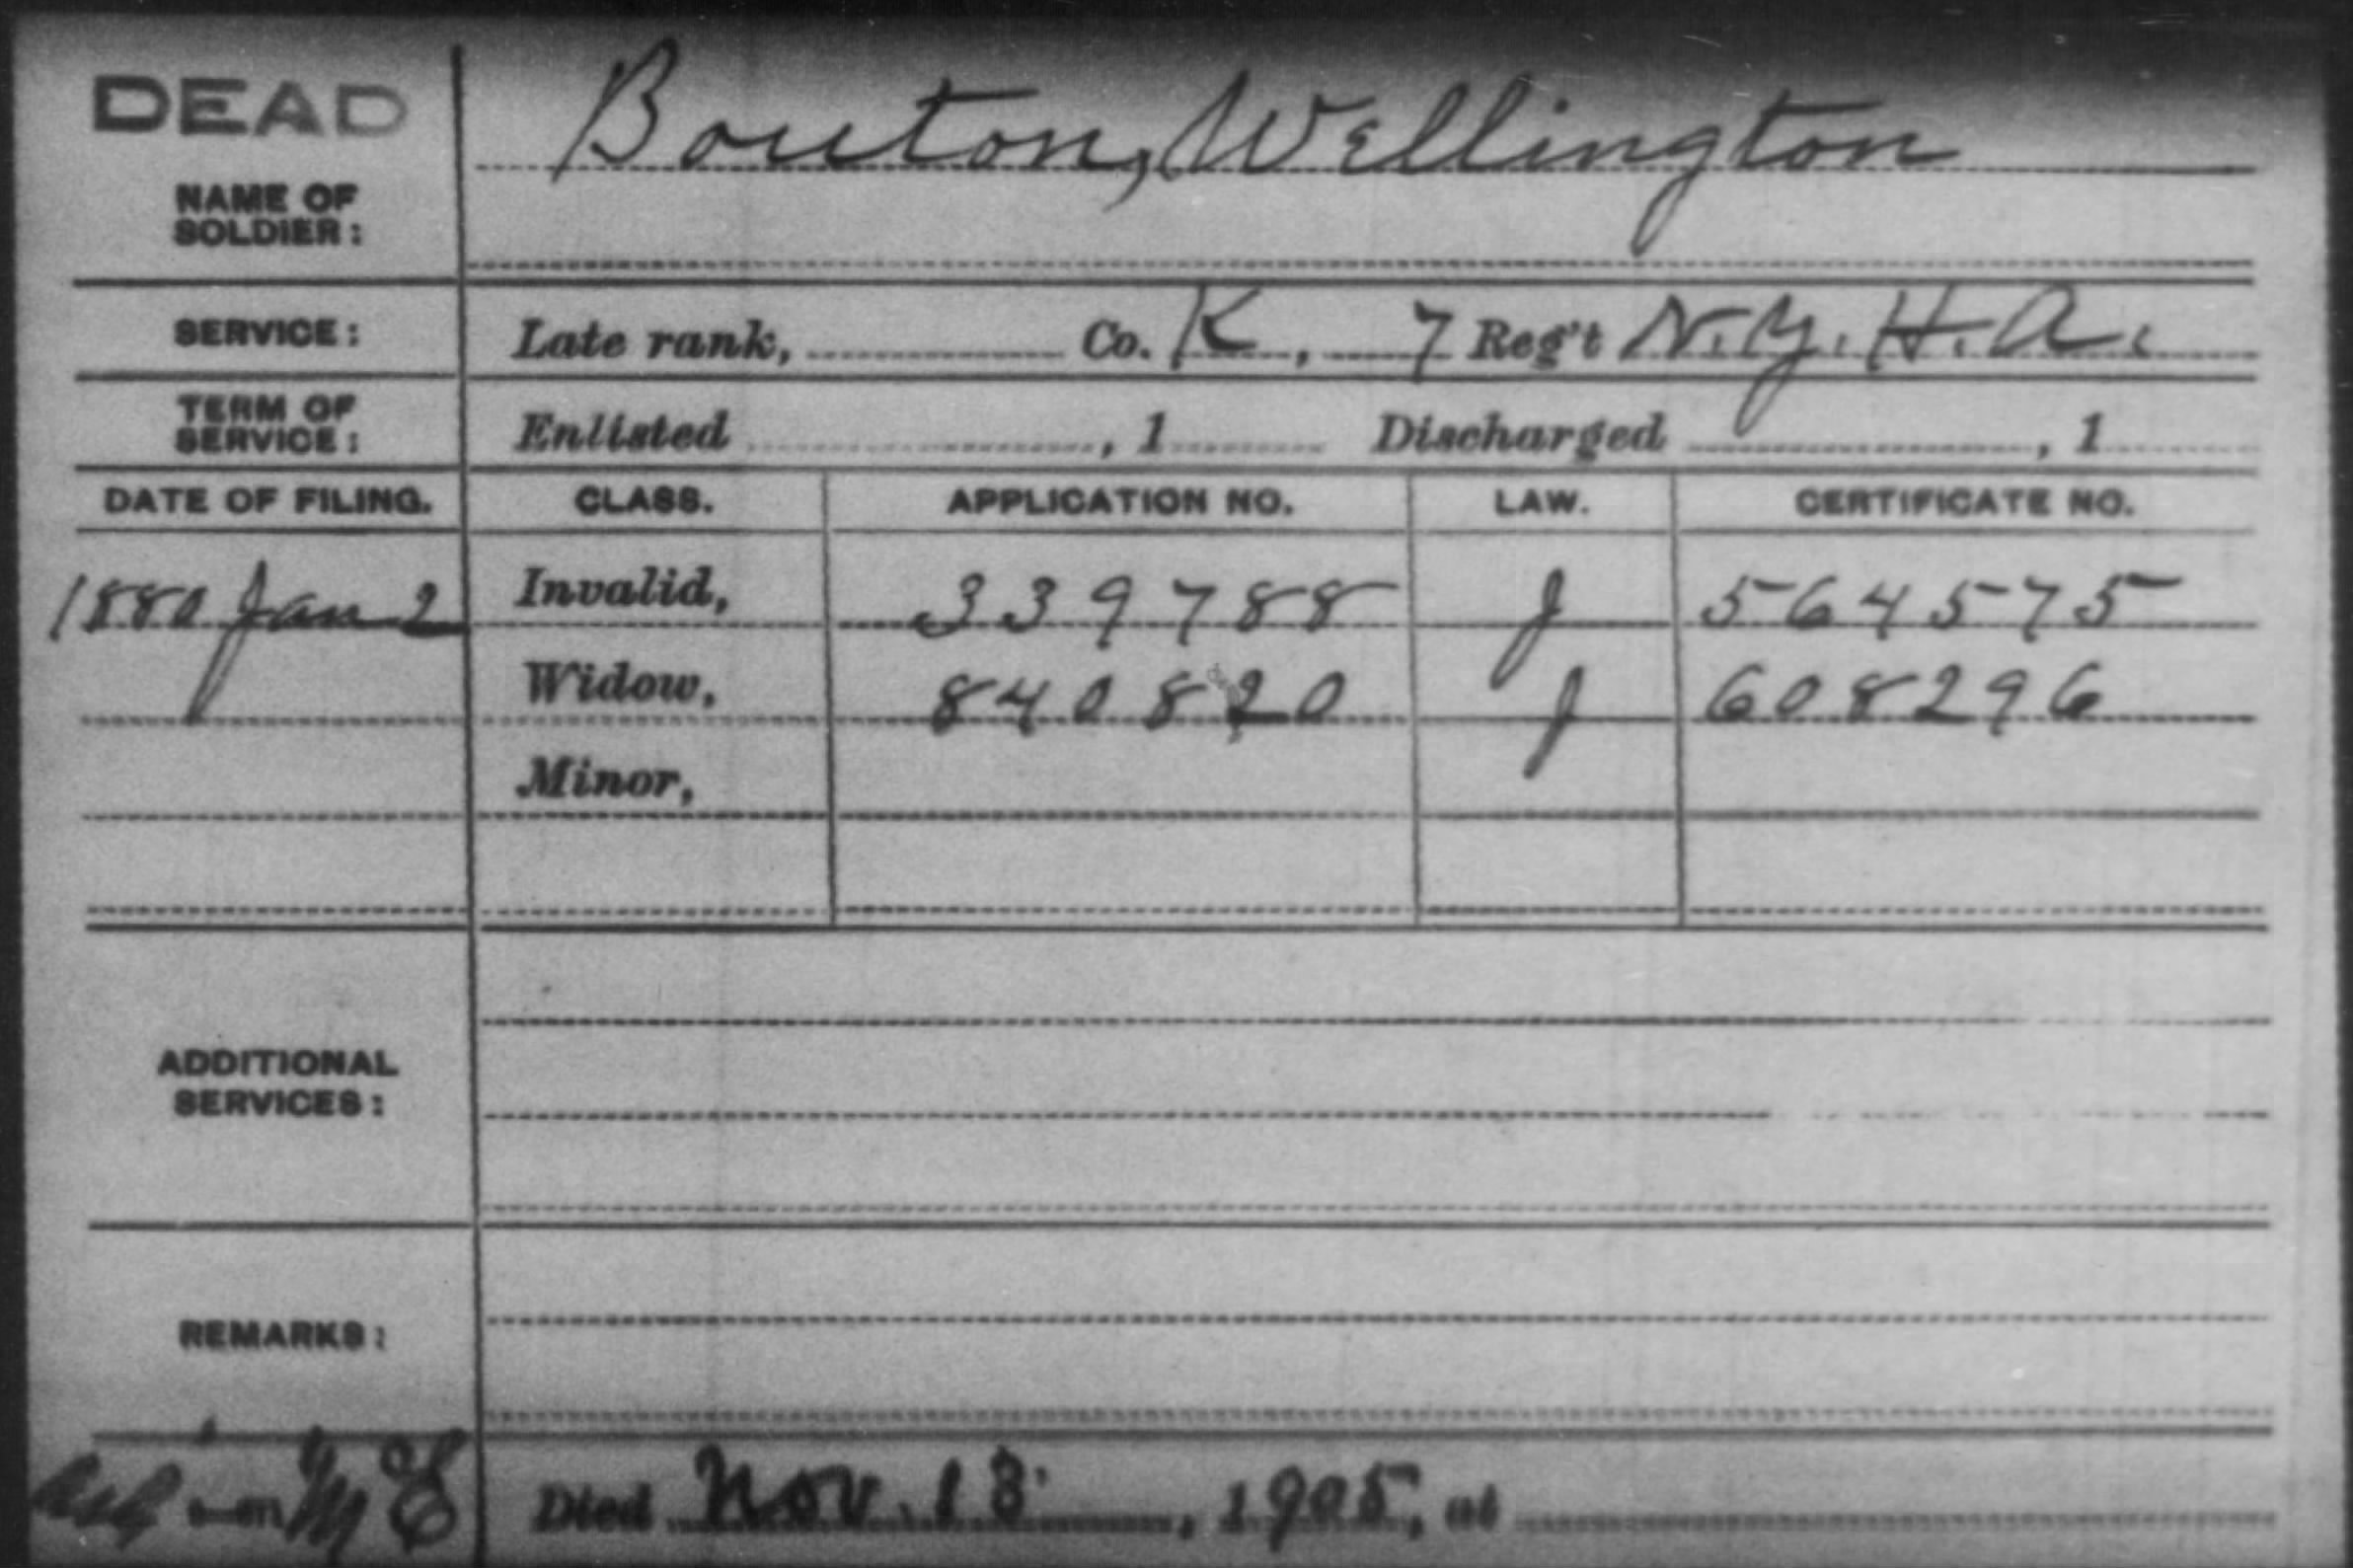 DEAD
Bouton, Wellington
NAME OF
SOLDIER:
SERVICE: Late rank, Co. K, 7 Reg't N.Y. H. A.
TERM OF
SERVICE: Enlisted , 1 Discharged , 1
DATE OF FILING. CLASS. APPLICATION NO. LAW. CERTIFICATE NO.
1880 Jan 2 Invalid, 339788 J 564575
Widow, 840820 J 608296
Minor,
ADDITIONAL
SERVICES:
REMARKS:
Died Nov. 13, 1905, at